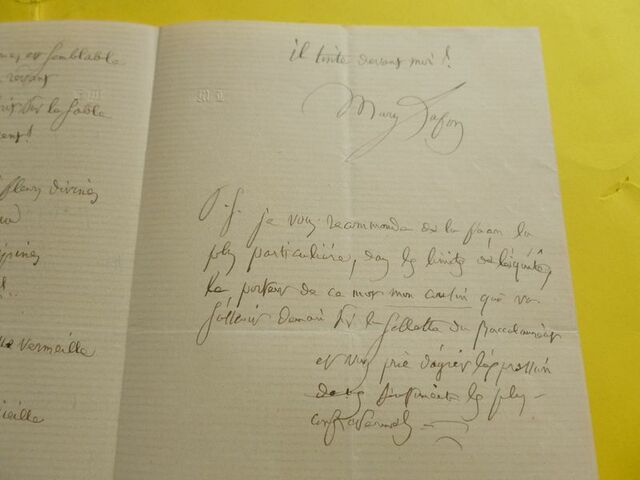 et semblable
devant
sur le sable
fleurs divines
Vermeille
ML
il tinte devant moi !
Mary Lafon
P. S. je vous recommande de la façon la
plus particulière, dans les limites de l'équité,
le porteur de ce mot mon cousin qui va
s'asseoir demain sur la sellette du Baccalauréat
et vous prie d'agréer l'expression
de sentiments les plus
confraternels